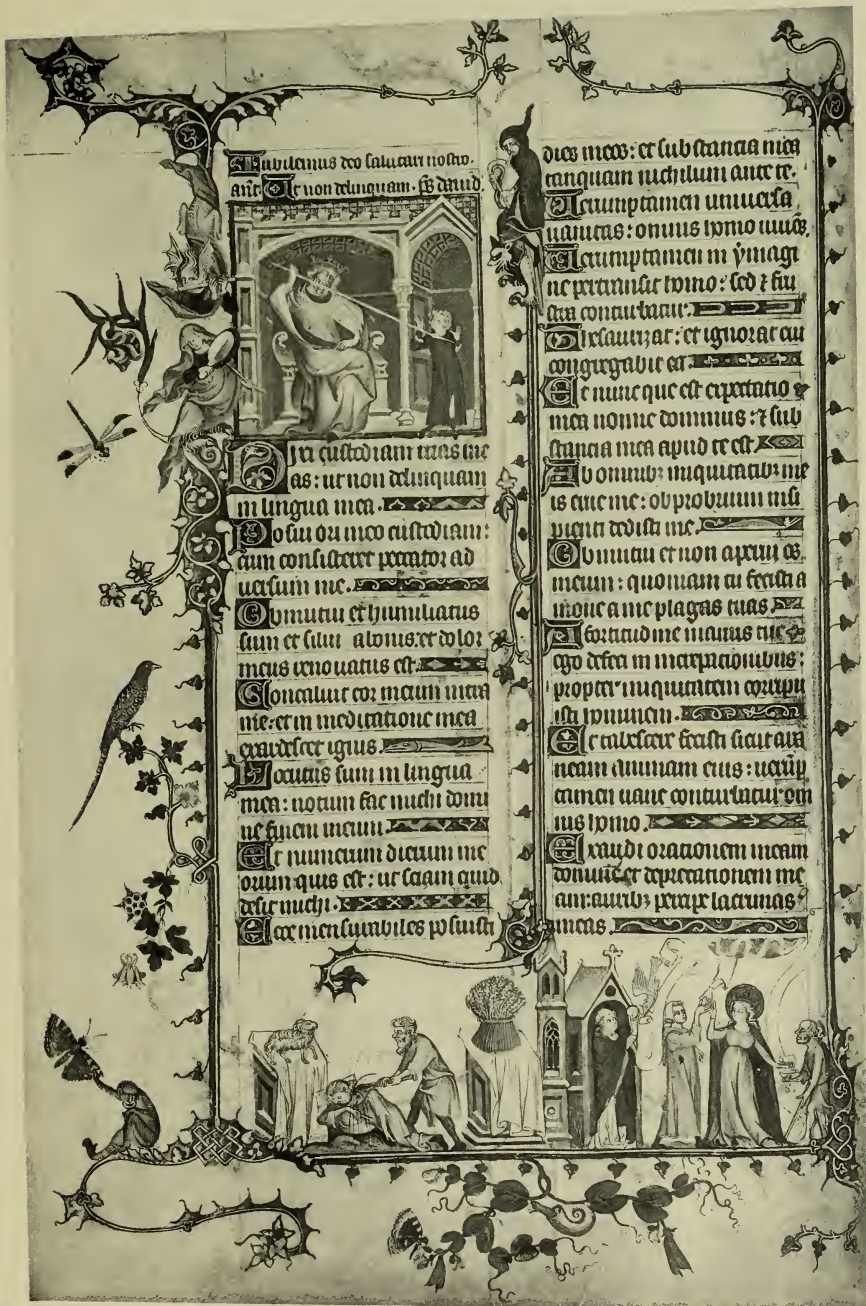 Iubilemus deo salutari nostro.
añt. Ut non delinquam. ps dauid.
Dixi custodiam uias me
as: ut non delinquam
in lingua mea.
Posui ori meo custodiam:
cum consisteret peccator ad
uersum me.
Obmutui et humiliatus
sum et silui a bonis: et dolor
meus renouatus est.
Concaluit cor meum intra
me: et in meditatione mea
exardescet ignis.
Locutus sum in lingua
mea: notum fac michi domi
ne finem meum.
Et numerum dierum me
orum quis est: ut sciam quid
desit michi.
Ecce mensurabiles posuisti
dies meos: et substancia mea
tanquam nichilum ante te.
Uerumptamen uniuersa
uanitas: omnis homo uiuẽs.
Uerumptamen in ymagi
ne pertransit homo: sed ⁊ fru
stra conturbatur.
Thesaurizat: et ignorat cui
congregabit ea.
Et nunc que est expectatio
mea nonne dominus: ⁊ sub
stancia mea apud te est.
Ab omnibꝫ iniquitatibꝫ me
is erue me: obprobrium insi
pienti dedisti me.
Obmutui et non aperui os
meum: quoniam tu fecisti a
moue a me plagas tuas.
A fortitudine manus tue
ego defeci in increpacionibus:
propter iniquitatem corripu
isti hominem.
Et tabescere fecisti sicut ara
neam animam eius: uerũp
tamen uane conturbatur om
nis homo.
Exaudi orationem meam
domine et deprecationem me
am: auribꝫ percipe lacrimas
meas.